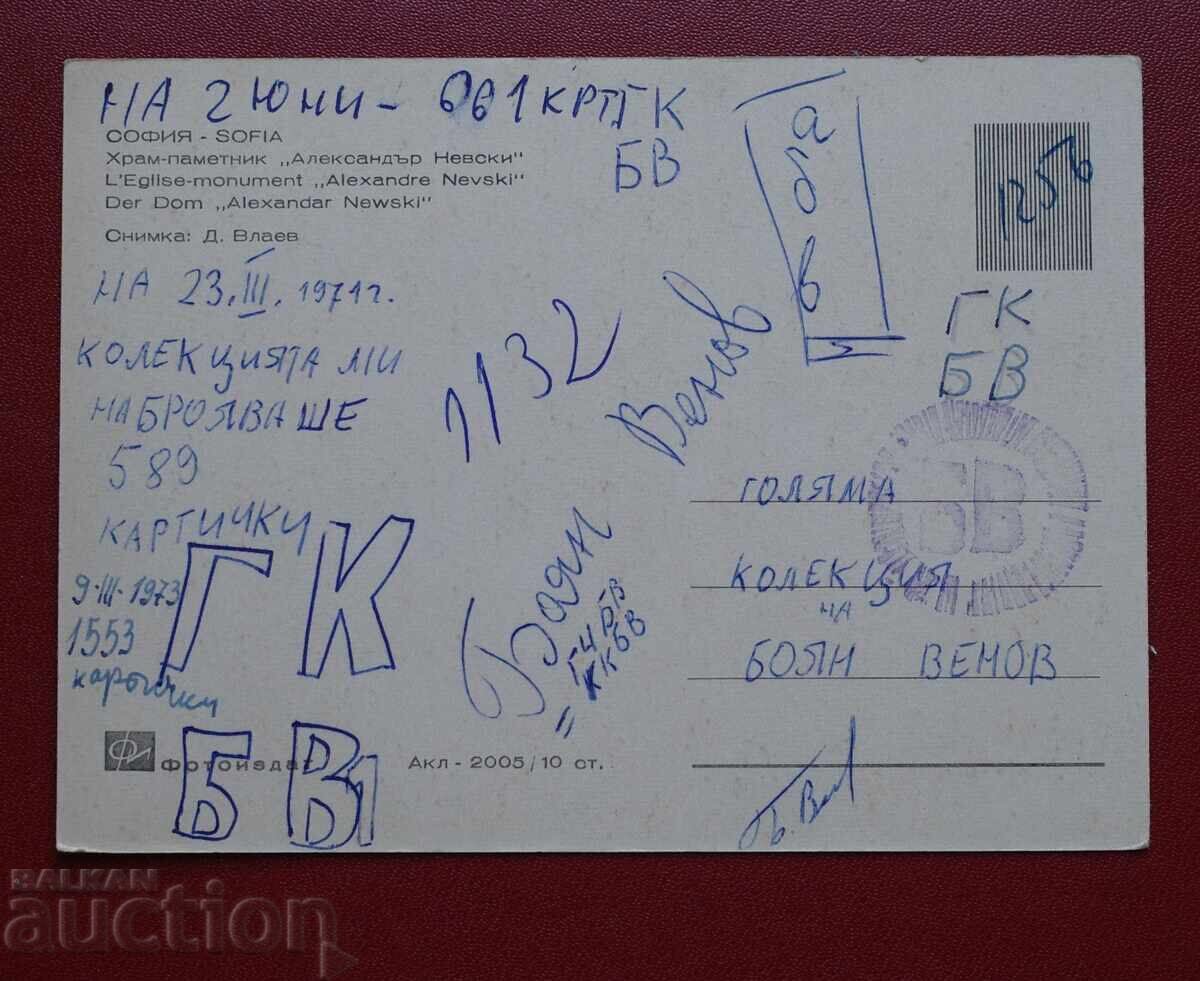 НА 2 ЮНИ - 661 КРТ ГК
БВ
СОФИЯ - SOFIA
Храм-паметник „Александър Невски"
L'Eglise-monument „Alexandre Nevski"
Der Dom „Alexandar Newski"
Снимка: Д. Влаев
НА 23.III.1971г.
КОЛЕКЦИЯТА МИ
НАБРОЯВАШЕ
589
КАРТИЧКИ
9-III-1973
1553
картички
ГК
БВ1
Фотоиздат
Акл - 2005/10 ст.
1132
Боян Венов
ГК
БВ
ГОЛЯМА
КОЛЕКЦИЯ
НА
БОЯН ВЕНОВ
БВ
BALKAN
auction